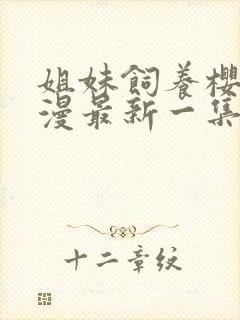 姐妹飼養櫻
漫最新一集
十二章紋